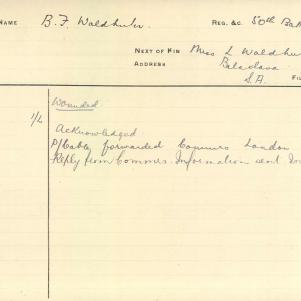 NAME B. F. Waldhuter REG. &C. 50th Bat
NEXT OF KIN Miss L Waldhu
ADDRESS Balaclava
S.A.
Wounded
1/4
Acknowledged
P/Cable forwarded Commrs London
Reply from Commrs. Information sent